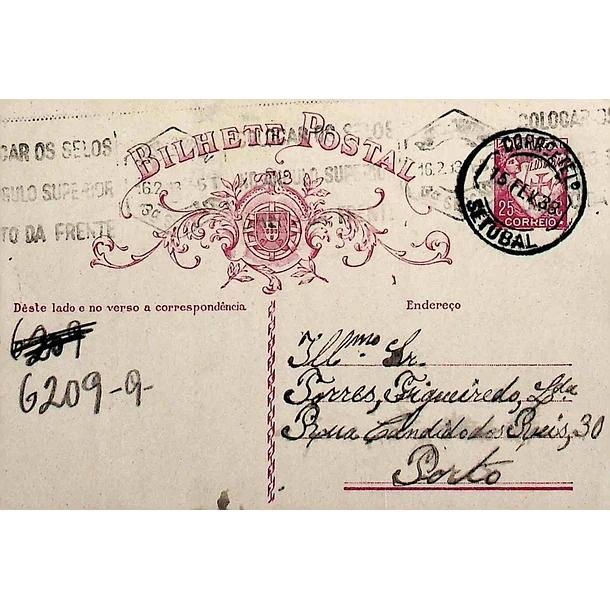 COLOCAR OS
CAR OS SELOS
OCAR OS SELOS
BILHETE POSTAL
CORRO
16.2
SULO SUPERIOR
SUPERIOR
25
CORREIO
15 FEV. 38
SETUBAL
TO DA FRENTE
FRENTE
Dêste lado e no verso a correspondência
Endereço
6209
6209-9-
Ill.mo Sr.
Torres, Figueiredo, Lda
Rua Candido dos Reis, 30
Porto